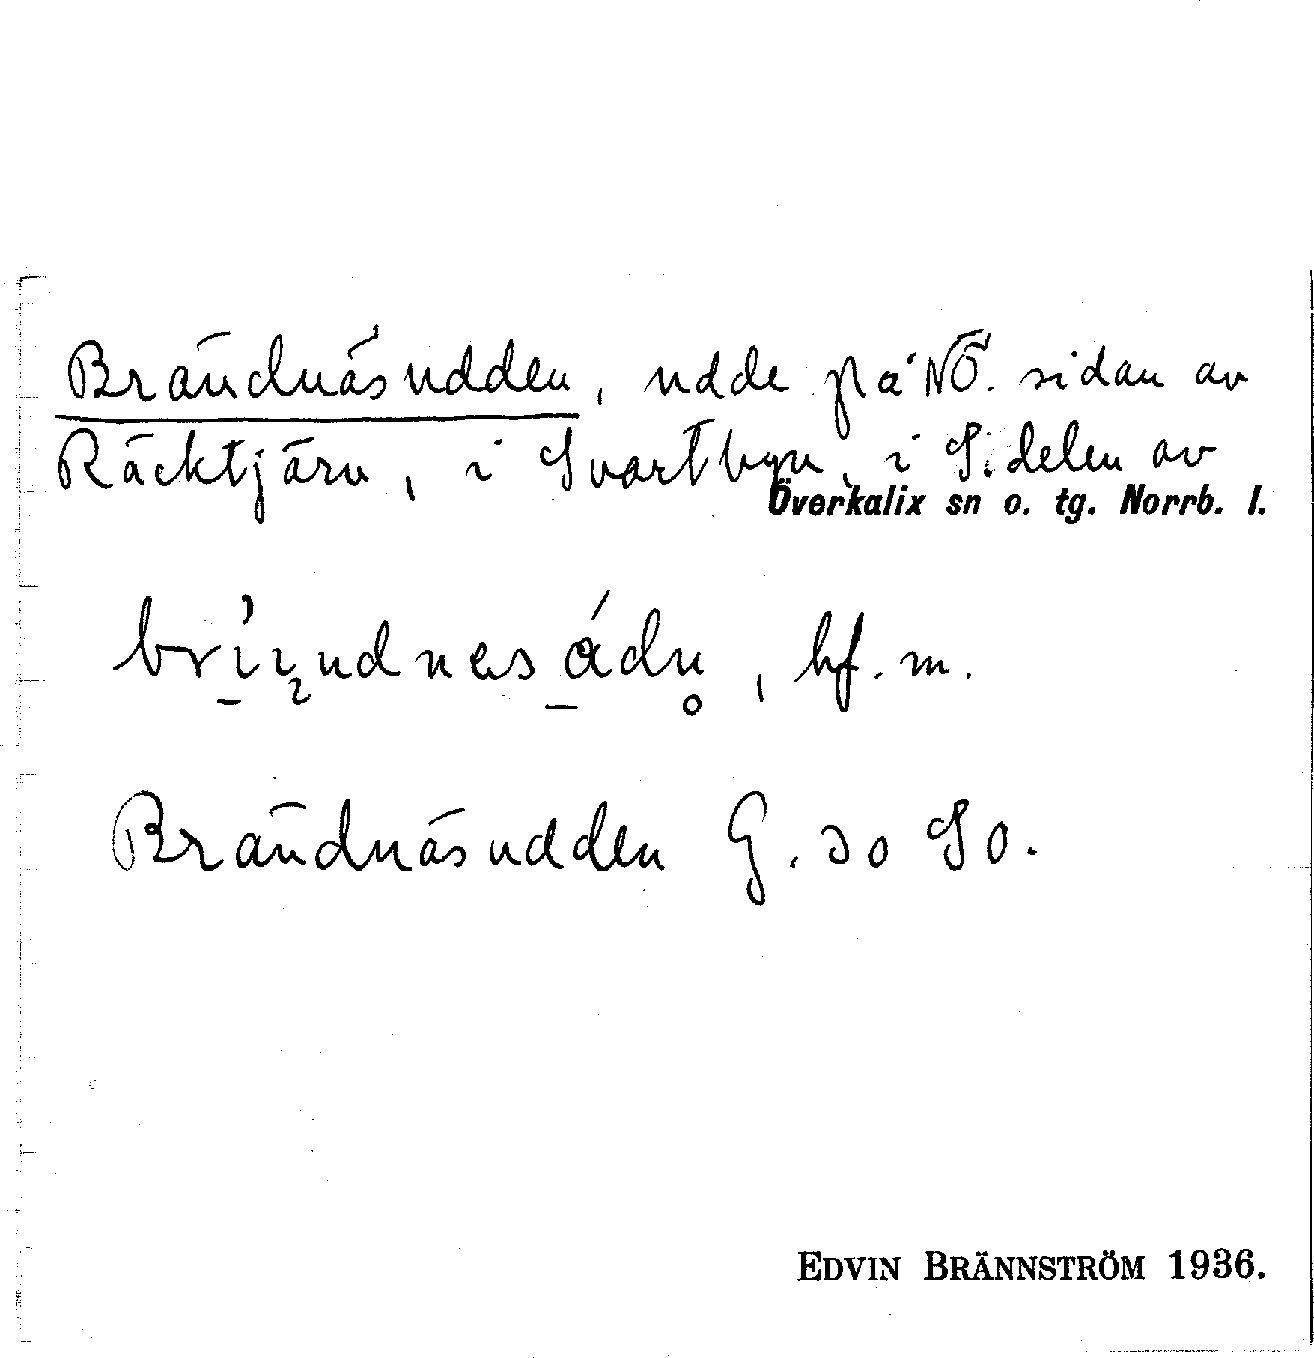 Brändnäsudden, udde på NÖ. sidan av
Räcktjärn, i Svartbyn, i S. delen av
Överkalix sn o. tg. Norrb. l.
, bf. m.
Brändnäsudden G. 30 SO.
EDVIN BRÄNNSTRÖM 1936.